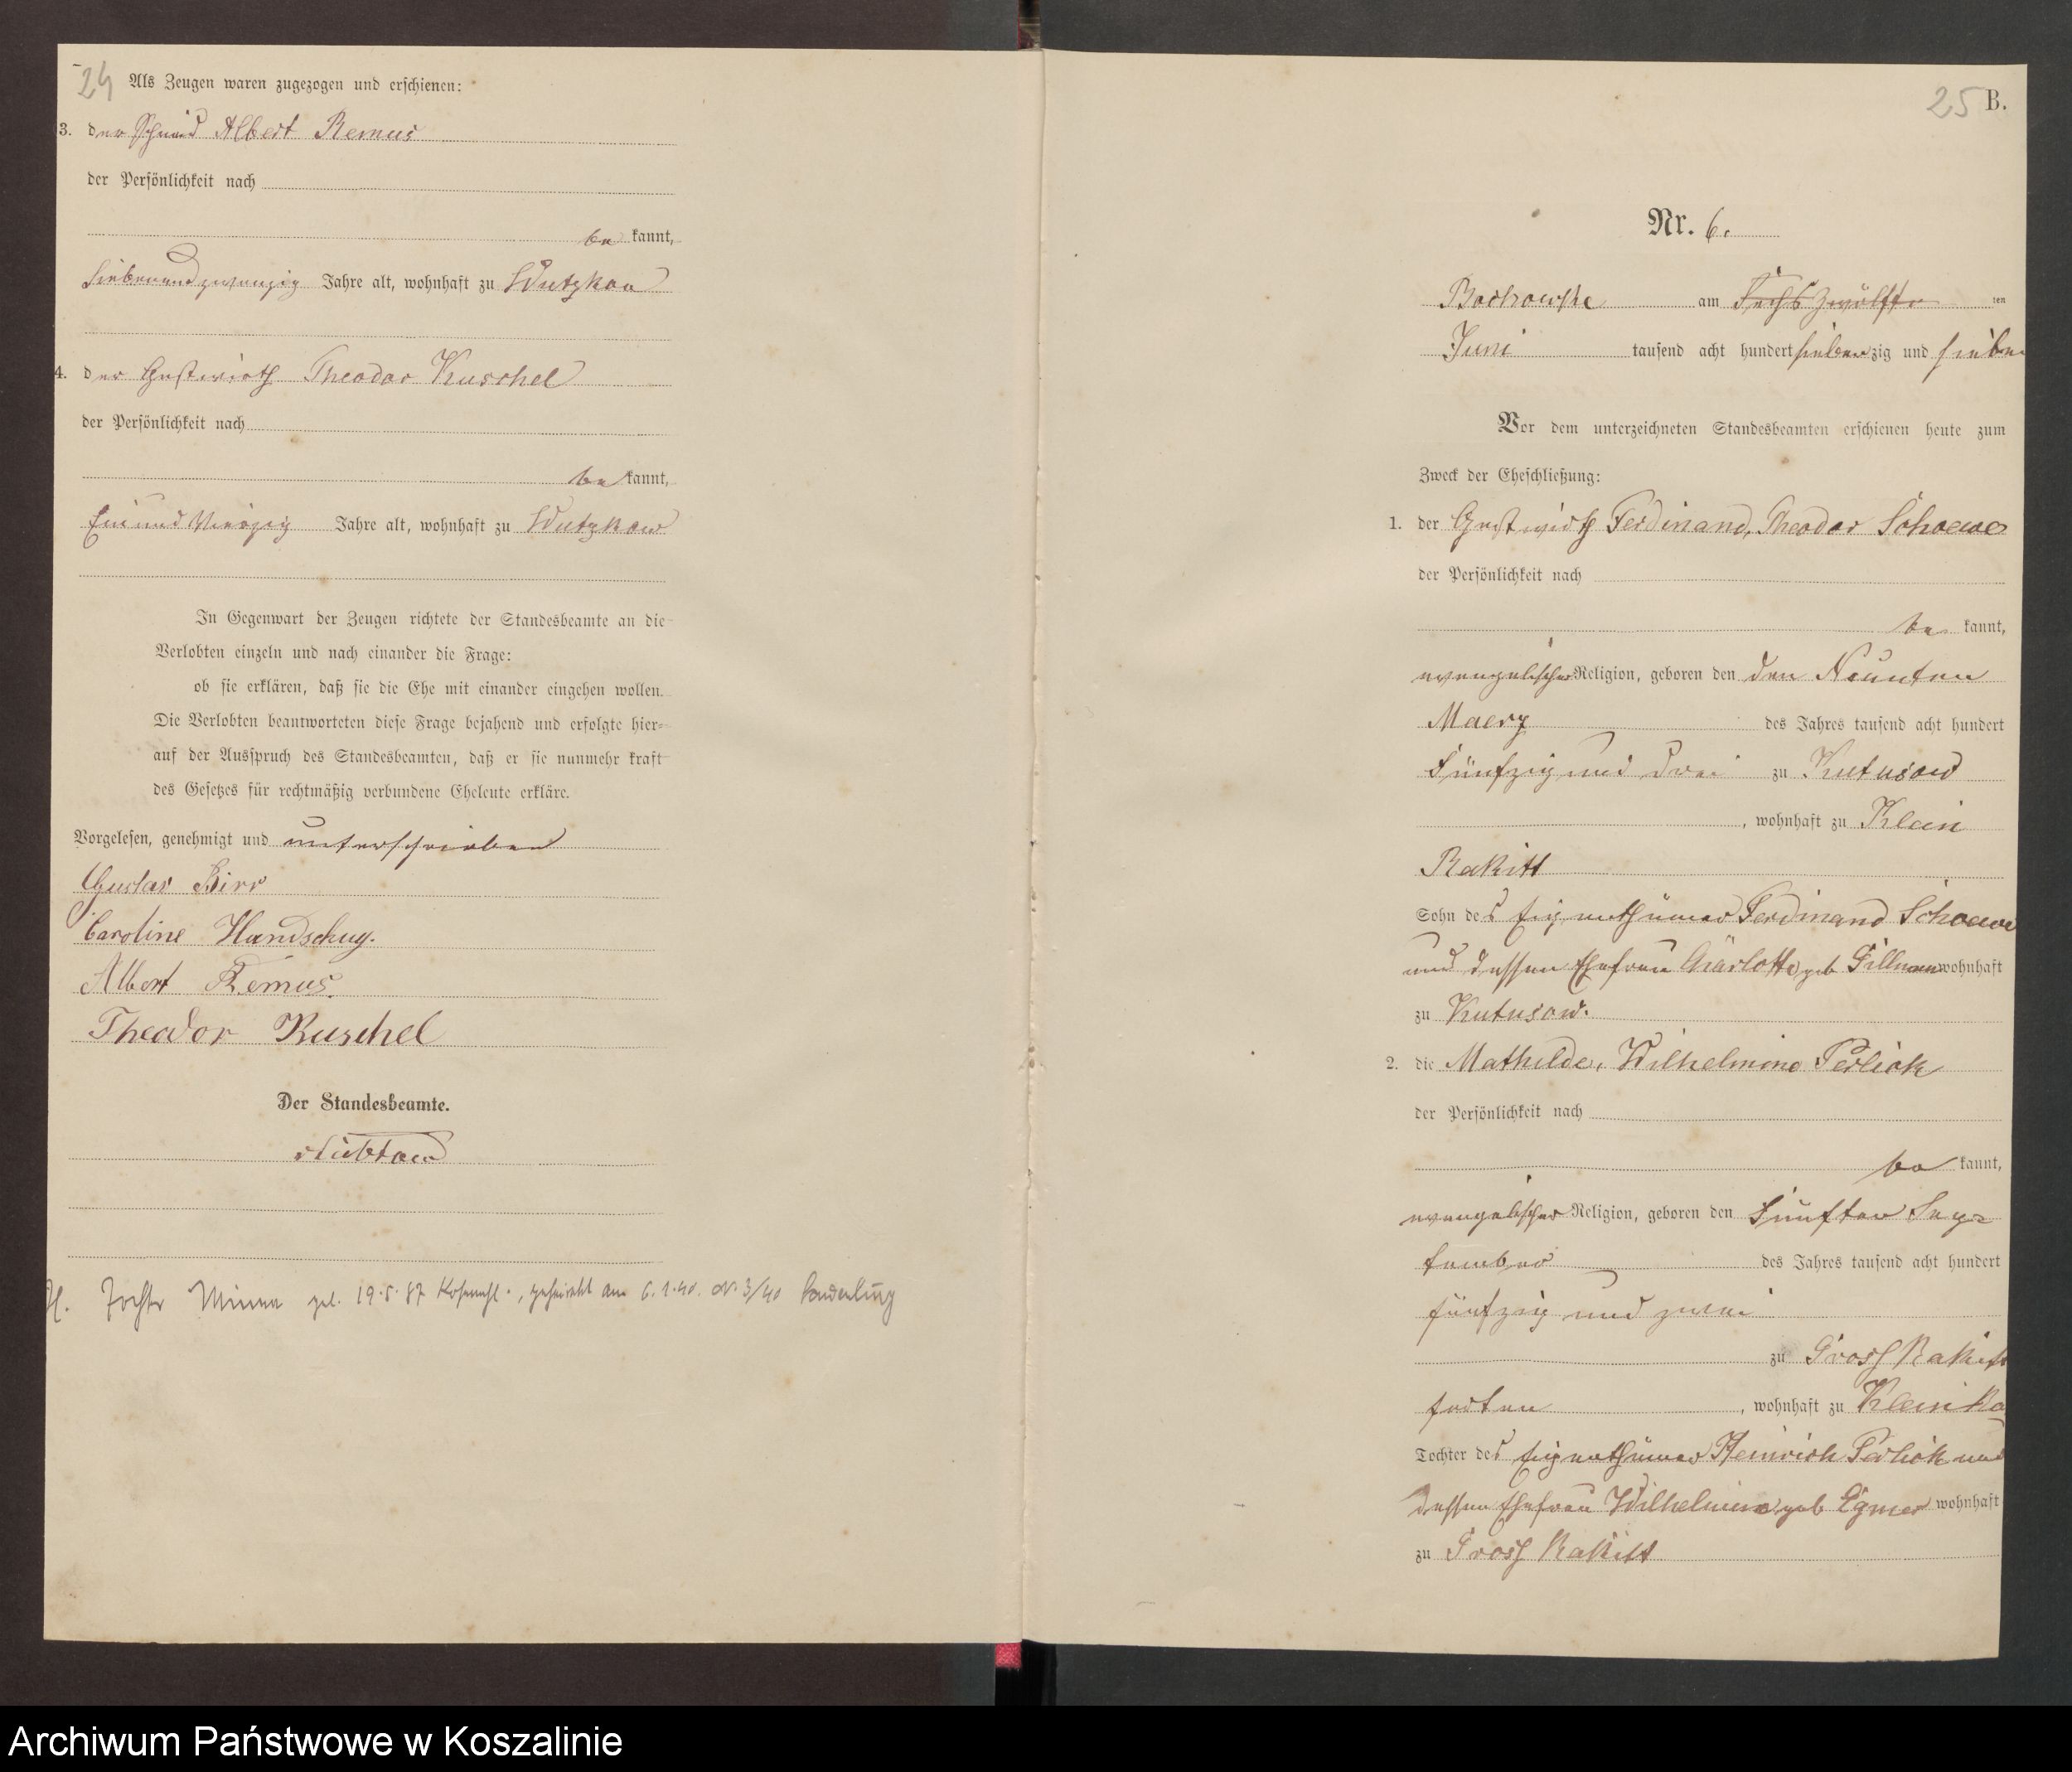 24 Als Zeugen waren zugezogen und erschienen:
3. der Schmied Albert Remus
der Persönlichkeit nach
be kannt,
Siebenundzwanzig Jahre alt, wohnhaft zu Wutzkow
4. der Gastwirth Theodor Kuschel
der Persönlichkeit nach
be kannt,
Ein und Vierzig Jahre alt, wohnhaft zu Wutzkow
In Gegenwart der Zeugen richtete der Standesbeamte an die
Verlobten einzeln und nach einander die Frage:
ob sie erklären, daß sie die Ehe mit einander eingehen wollen.
Die Verlobten beantworteten diese Frage bejahend und erfolgte hier-
auf der Ausspruch des Standesbeamten, daß er sie nunmehr kraft
des Gesetzes für rechtmäßig verbundene Eheleute erkläre.
Vorgelesen, genehmigt und unterschrieben
Gustav Birr
Caroline Handschug.
Albert Remus.
Theodor Kuschel
Der Standesbeamte.
H. Tochter Minna geb. 19.5.87, geheiratet am 6.1.40. Nr. 3/40
25 B.
Nr. 6.
am Sechs Zwölfte ten
Juni tausend acht hundert siebenzig und sieben
Vor dem unterzeichneten Standesbeamten erschienen heute zum
Zweck der Eheschließung:
1. der Gastwirth Ferdinand, Theodor
der Persönlichkeit nach
be kannt,
evangelischer Religion, geboren den den Neunten
Maerz des Jahres tausend acht hundert
fünfzig und drei zu Kutusow
, wohnhaft zu Klein
Rakitt
Sohn des Eigenthümer Ferdinand
und dessen Ehefrau Charlotte geb wohnhaft
zu Kutusow.
2. die Mathilde, Wilhelmine Perlick
der Persönlichkeit nach
be kannt,
evangelischer Religion, geboren den Fünften Sep=
tember des Jahres tausend acht hundert
fünfzig und zwei
zu Gross Rakitt
, wohnhaft zu Klein Ra
Tochter des Eigenthümer Heinrich Perlick und
dessen Ehefrau Wilhelmine geb wohnhaft
zu Gross Rakitt
Archiwum Państwowe w Koszalinie